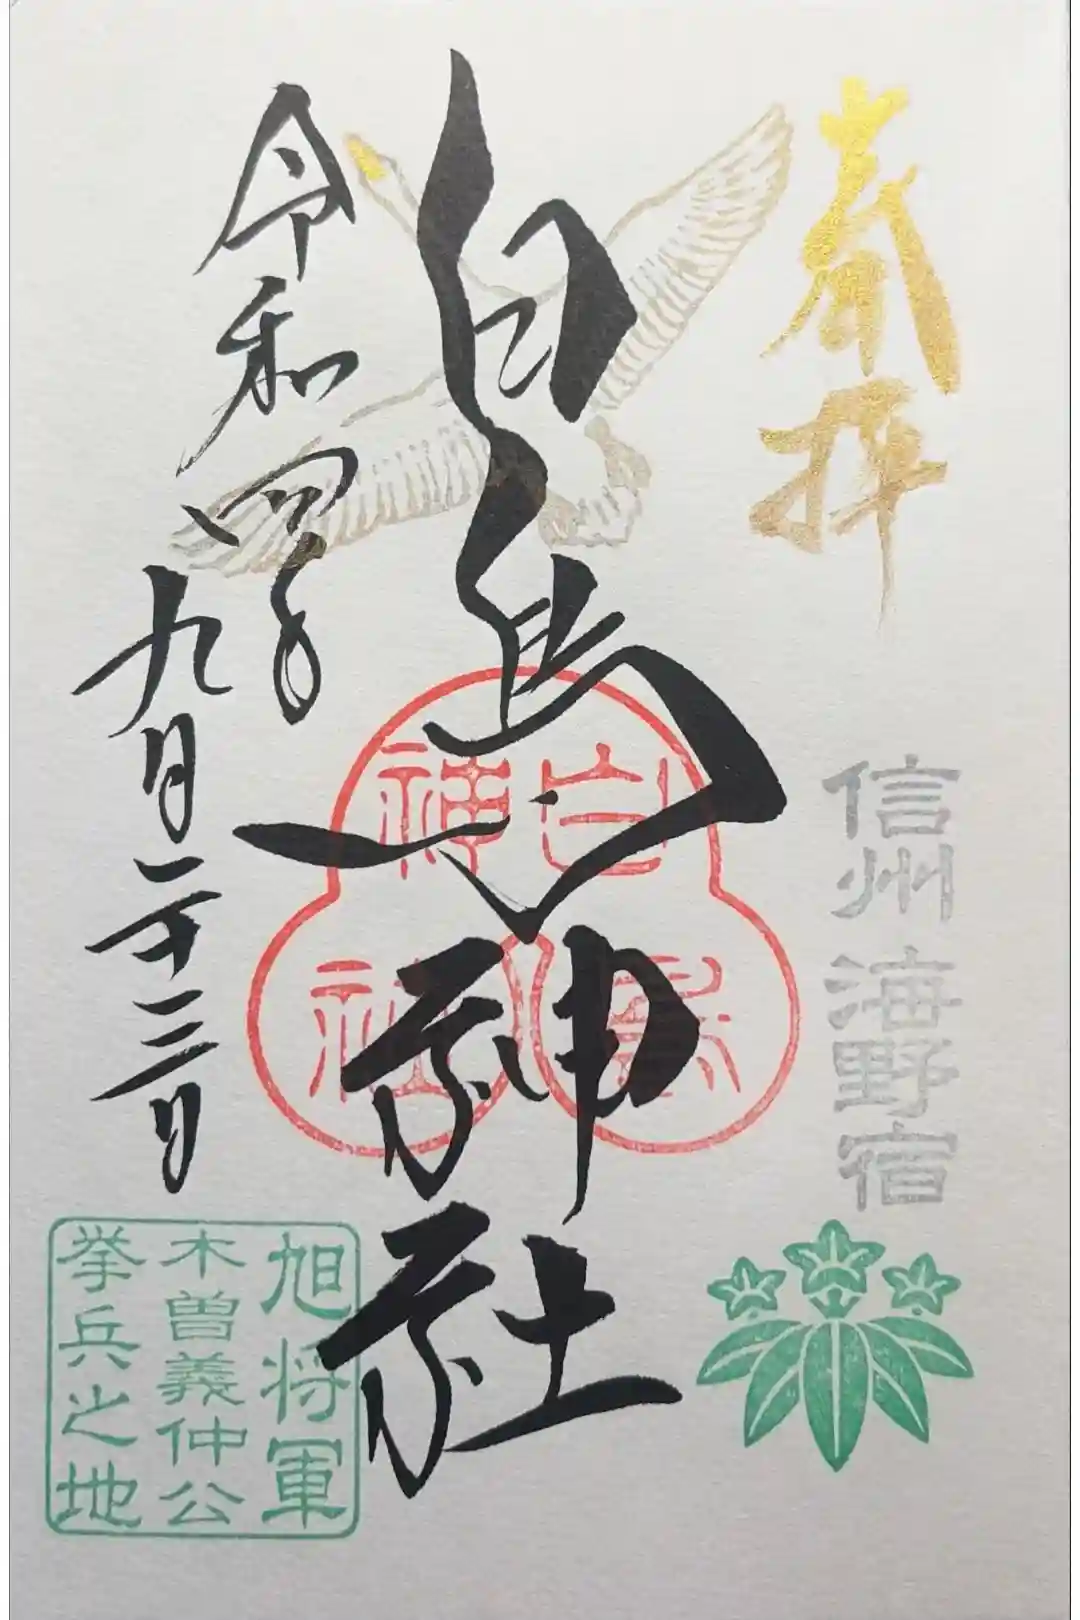 奉拝
信州 海野宿
白鳥神社
白鳥
神社
令和四年
九月二十三日
旭将軍
木曽義仲公
挙兵之地